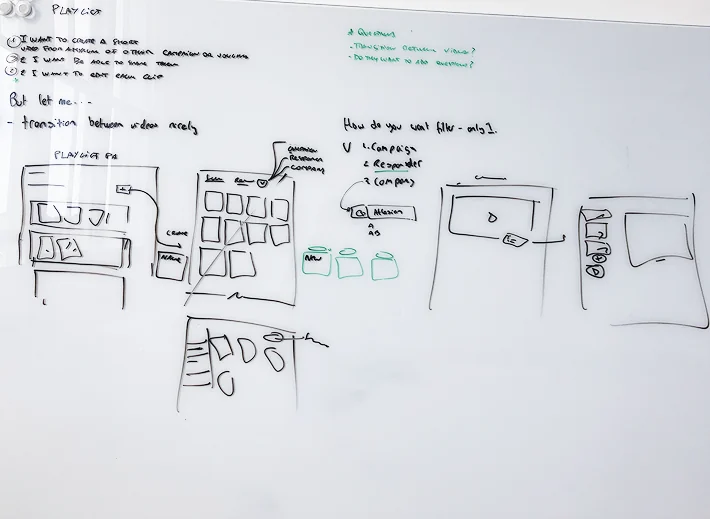 PLAYLIST
① I WANT TO CREATE A SHORT
VIDEO FROM OTHER CAMPAIGN OR
② & I WANT BE ABLE TO SHARE THEM
③ & I WANT TO EDIT EACH CLIP
* QUESTIONS
- TRANSITION BETWEEN VIDEOS?
- DO THEY WANT TO ADD QUESTIONS?
But let me...
- transition between videos nicely
How do you want filter - only 1.
1. Campaign
2. Responder
3. Company
PLAYLIST
CAMPAIGN
RESPONDER
COMPANY
CREATE
NAME
Atlassian
A
AB
NEW